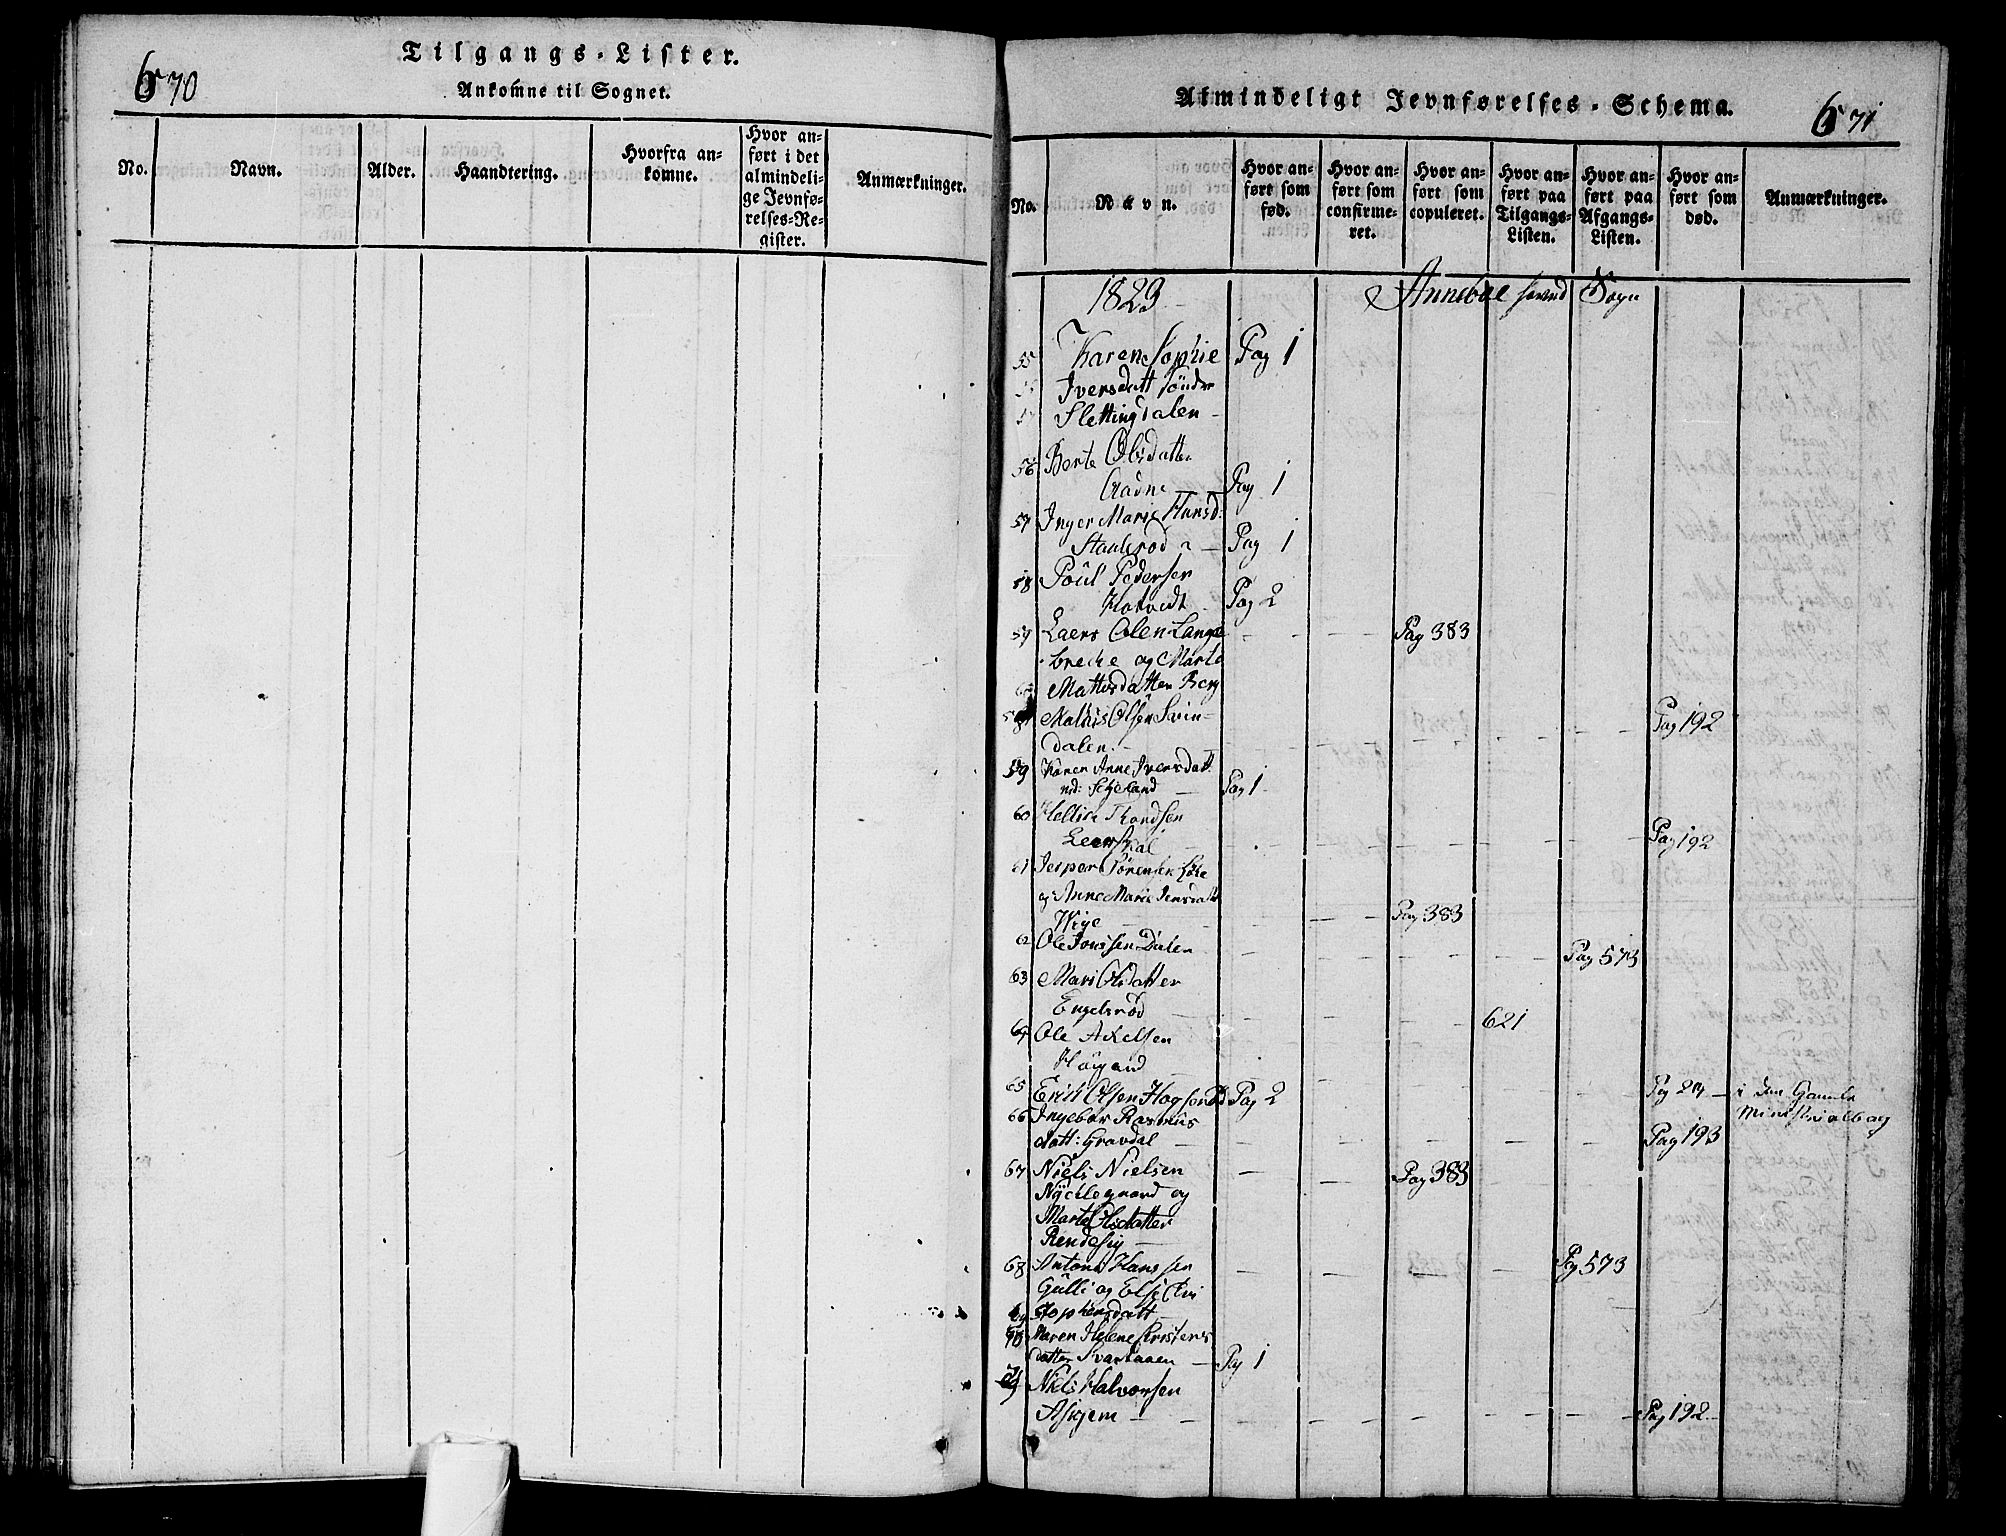 670
Tilgangs-Lister.
Ankomne til Sognet.
No.
Navn.
Alder.
Haandtering.
Hvorfra an-
komne.
Hvor an-
ført i det
almindeli-
ge Jevnfø-
relses-Re-
gister.
Anmærkninger.
Almindeligt Jevnførelses-Schema.
671
No.
Navn.
Hvor an-
ført som
fød.
Hvor an-
ført som
confirme-
ret.
Hvor an-
ført som
copuleret.
Hvor an-
ført paa
Tilgangs-
Listen.
Hvor an-
ført paa
Afgangs-
Listen.
Hvor an-
ført som
død.
Anmærkninger.
1823 Annebøe Sogn
55 Karen Sophie Pag 1
Iversdatt Söndre
Slettingdalen
56 Berte Olsdatter
Pag 1
57 Inger Marie Hansd:
Staulsrod Pag 1
58 Poul Pedersen
Hotvedt Pag 2
59 Laers Olsen Lange Pag 383
brecke og Marte
Mattisdatter Berg
Mathis Olsen Svin- Pag 192
dalen.
59 Karen Anne Iversdatt
nd: Schieland Pag 1
60 Thordsen
Leerskal Pag 192
61 Jesper Sörensen
og Anne Marie Jensdatt
Wige Pag 383
62 Ole Dalen Pag 573
63 Mari Olsdatter
Engelsrød 621
64 Ole Axelsen
Höigaard
65 Erich Olsen Pag 2 Pag i den Gamle
Ministerialbog
66 Ingebor Rasmus
datt: Gravdal Pag 193
67 Niels Nielsen Pag 383
Nychlegaard og
Marte Olsdatter
Rendesig
68 Antoni Hanssen Pag 573
Gulli og Else
69 Stephensdatt
70 Maren Helene Kristens
datter Svartaaen Pag 1
71 Niels Halvorsen
Askjem Pag 192